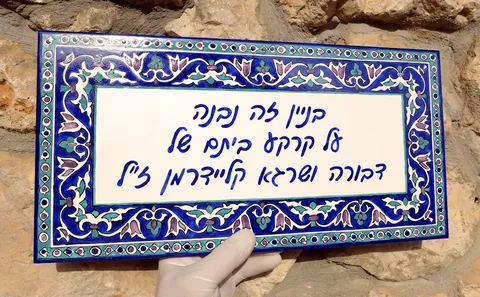 בניין זה נבנה
על קרקע ביתם של
דבורה ושרגא קליידרמן ז״ל